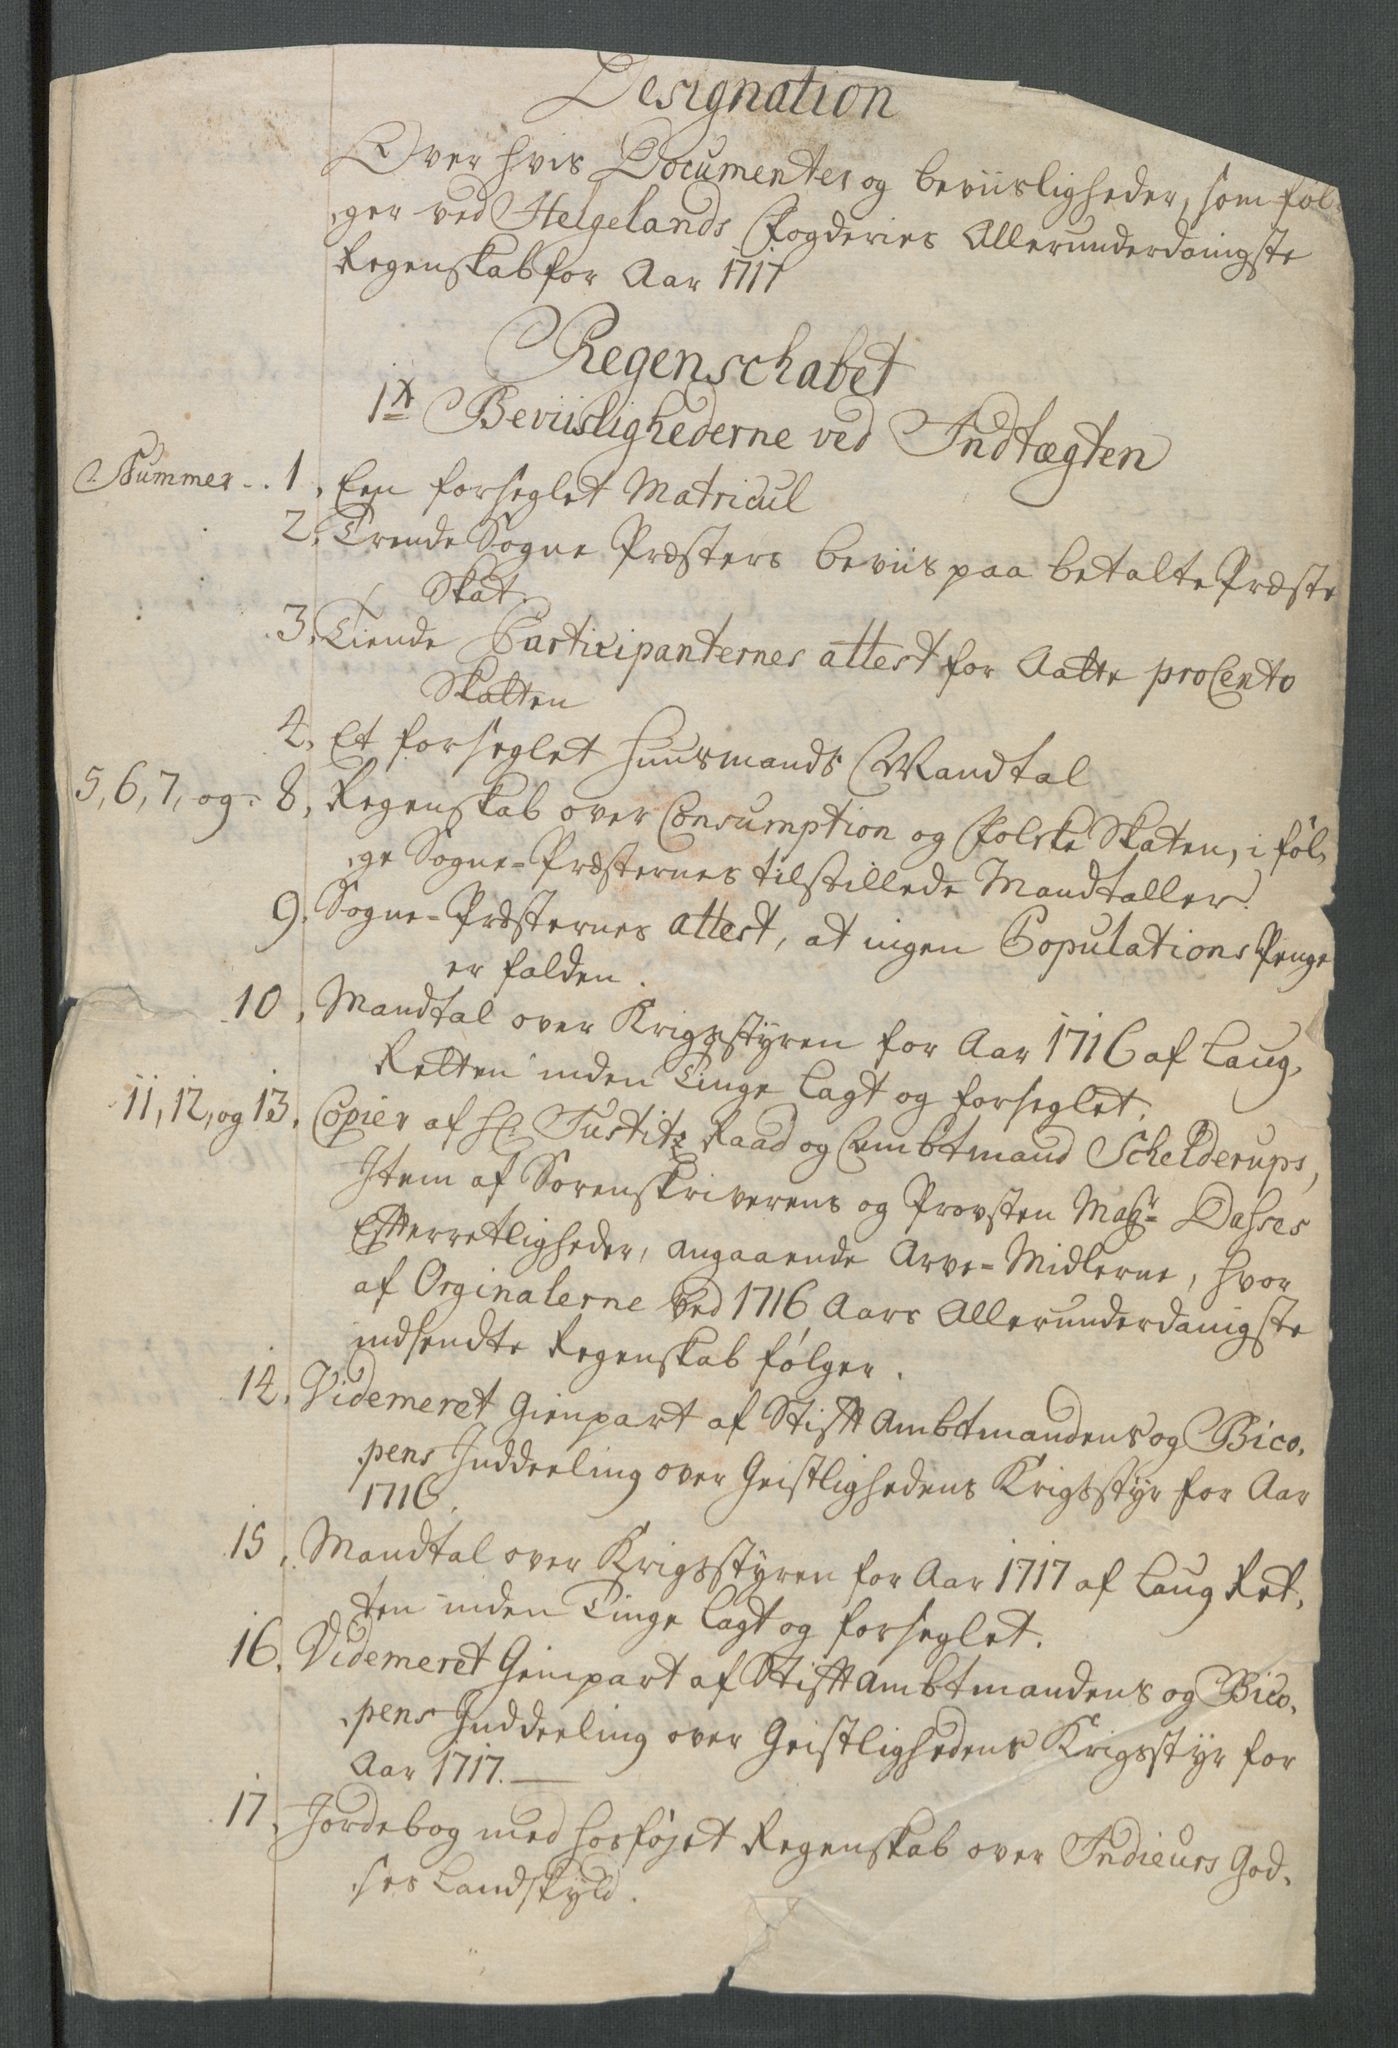 Designation
Over hvis Documenter og beviisligheder, som føl-
ger ved Helgelands Fogderies Allerunderdanigste
Regenskab for Aar 1717
Regenschabet
Beviislighederne ved Indtægten
Nummer .. 1. Een forseglet Matricul
2. Trende Sogne Præsters beviis paa betalte Præste
Skat.
3. Tiende Participanternes attest for Aatte pro Cento
Skatten
4. Et forseglet Huusmands Mandtal
5, 6, 7, og 8. Regenskab over Consumption og Folke Skaten, i føl-
ge Sogne-Præsternes tilstillede Mandtaller.
9. Sogne-Præsternes attest, at ingen Copulations Penge
er falden.
10. Mandtal over Krigsstyren for Aar 1716 af Laug-
Retten inden Tinge lagt og forseglet.
11, 12, og 13. Copier af Hr. Justitz Raad og Ambtmand Schelderups,
Item af Sorenskriverens og Provsten Magr. Dasses
Efterretligheder, angaaende Arve-Midlerne, hvor
af Orginalerne ved 1716 Aars Allerunderdanigste
indsendte Regenskab følger.
14. Videmeret Gienpart af Stifft Ambtmandens og Bico-
pens Inddeeling over Geistlighedens Krigsstyr for Aar
1716.
15. Mandtal over Krigsstyren for Aar 1717 af Laug Ret-
ten inden Tinge lagt og forseglet.
16. Videmeret Genpart af Stifft Ambtmandens og Bico-
pens Inddeeling over Geistlighedens Krigsstyr for
Aar 1717.
17. Jordebog med hosføjet Regenskab over Indieurs God-
ses Landskyld.